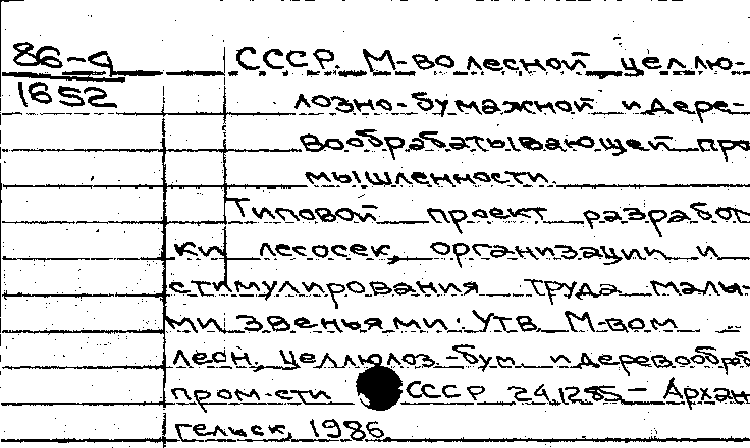 86-4 СССР. М-во лесной целлю-
1652 лозно-бумажной и дере-
вообрабатывающей про
мышленности.
Типовой проект разработ
ки лесосек, организации и
стимулирования труда малы-
ми звеньями: Утв. М-вом
лесн., целлюлоз.-бум. и деревообраб
пром-сти СССР 24.12.85 – Архан
гельск, 1986.